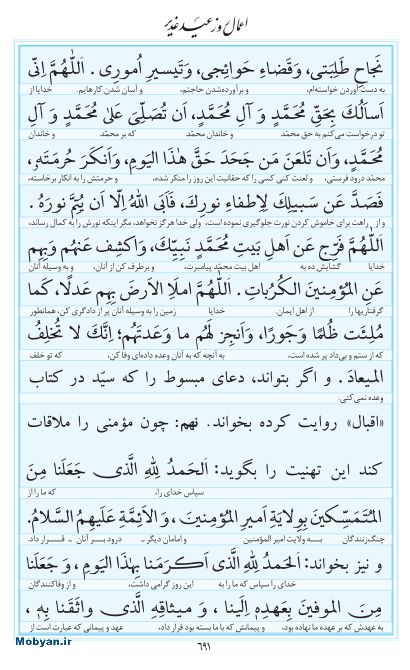 اعمال روز عید غدیر
نَجاحِ طَلِبَتی، وَقَضاءِ حَوائِجی، وَتَیسیرِ اُموری. اَللّٰهُمَّ اِنّی
به دست آوردن خواسته‌ام، و برآورده‌شدن حاجتم، و آسان شدن کارهایم. خدایا از
اَسأَلُكَ بِحَقِّ مُحَمَّدٍ وَ آلِ مُحَمَّدٍ، اَن تُصَلِّیَ عَلیٰ مُحَمَّدٍ وَ آلِ
تو درخواست می‌کنم به حق محمّد و خاندان محمّد، که بر محمّد و خاندان
مُحَمَّدٍ، وَاَن تَلعَنَ مَن جَحَدَ حَقَّ هٰذَا الیَومِ، وَاَنکَرَ حُرمَتَهٗ،
محمّد درود فرستی، و لعنت کنی کسی را که حقانیت این روز را منکر شده، و حرمتش را به انکار برخاسته،
فَصَدَّ عَن سَبیلِكَ لِاِطفاءِ نورِكَ، فَاَبَی اللهُ اِلّا اَن یُتِمَّ نورَهٗ.
و از راهت برای خاموش کردن نورت جلوگیری نموده است، ولی خدا هرگز نخواهد، مگر اینکه نورش را به کمال رساند،
اَللّٰهُمَّ فَرِّج عَن اَهلِ بَیتِ مُحَمَّدٍ نَبِیِّكَ، وَاکشِف عَنهُم وَبِهِم
خدایا گشایش ده به اهل بیت محمّد پیامبرت، و برطرف کن از آنان، و به وسیله آنان
عَنِ المُؤمِنینَ الکُرُباتِ. اَللّٰهُمَّ املَاِ الاَرضَ بِهِم عَدلًا، کَما
گرفتاریها را از اهل ایمان. خدایا زمین را به وسیله آنان پر از دادگری کن، همانطور
مُلِئَت ظُلمًا وَجَورًا، وَاَنجِز لَهُم ما وَعَدتَهُم؛ اِنَّكَ لا تُخلِفُ
که از ستم و بی‌داد پر شده است، به آنچه که به آنان وعده داده‌ای وفا کن، که تو خلف
المیعادَ. و اگر بتواند، دعای مبسوط را که سیّد در کتاب
وعده نمی‌کنی.
«اقبال» روایت کرده بخواند. نهم: چون مؤمنی را ملاقات
کند این تهنیت را بگوید: اَلحَمدُ لِلّٰهِ الَّذی جَعَلَنا مِنَ
سپاس خدای را، که ما را از
المُتَمَسِّکینَ بِوِلایَةِ اَمیرِ المُؤمِنینَ، وَالاَئِمَّةِ عَلَیهِمُ السَّلامُ.
چنگ‌زنندگان به ولایت امیر المؤمنین و امامان دیگر ـ درود بر آنان ـ قرار داد.
و نیز بخواند: اَلحَمدُ لِلّٰهِ الَّذی اَکرَمَنا بِهٰذَا الیَومِ، وَ جَعَلَنا
خدای را سپاس که ما را به این روز گرامی داشت، و از وفاکنندگان
مِنَ الموفینَ بِعَهدِهٖ اِلَینا، وَ میثاقِهِ الَّذی واثَقَنا بِهٖ،
به عهدش که بر عهده ما نهاده بود، و پیمانش که با ما بسته بود قرار داد، عهد و پیمانی که عبارت است از
۶۹۱
Mobyan.ir